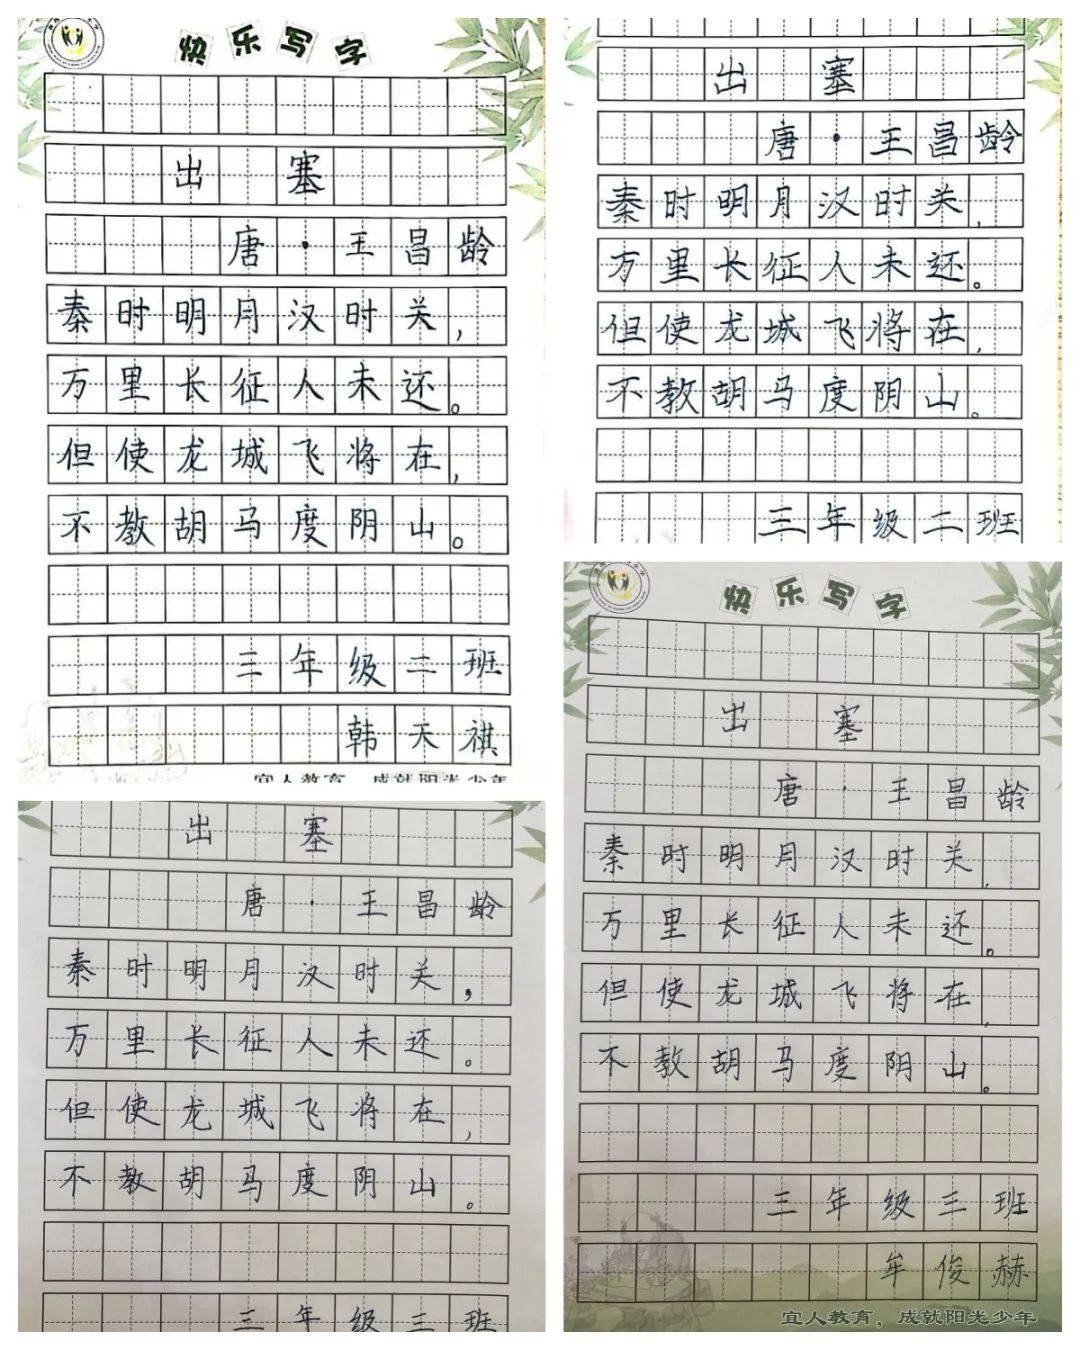 快乐写字
出 塞
唐·王昌龄
秦时明月汉时关,
万里长征人未还。
但使龙城飞将在,
不教胡马度阴山。
三年级二班
韩天祺
宜人教育,成就阳光少年
出 塞
唐·王昌龄
秦时明月汉时关,
万里长征人未还。
但使龙城飞将在,
不教胡马度阴山。
三年级二班
出 塞
唐·王昌龄
秦时明月汉时关,
万里长征人未还。
但使龙城飞将在,
不教胡马度阴山。
三年级三班
快乐写字
出 塞
唐·王昌龄
秦时明月汉时关,
万里长征人未还。
但使龙城飞将在,
不教胡马度阴山。
三年级三班
牟俊赫
宜人教育,成就阳光少年